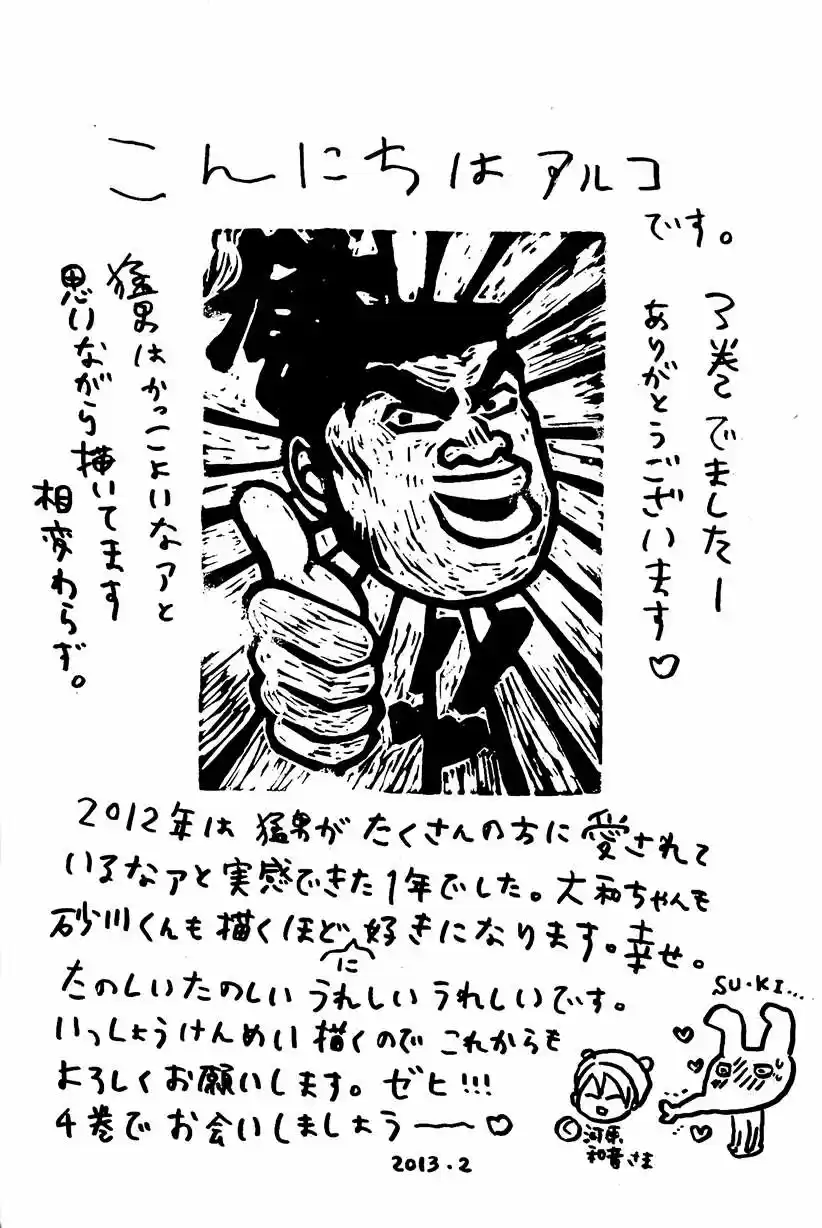 こんにちは アルコ
です。
3巻でましたー
ありがとうございます♡
猛男はかっこよいなァと
思いながら描いてます
相変わらず。
2012年は 猛男が たくさんの方に 愛されて
いるなァと実感できた1年でした。大和ちゃんも
砂川くんも描くほどに好きになります。幸せ。
たのしいたのしい うれしい うれしいです。
いっしょうけんめい 描くので これからも
よろしくお願いします。ゼヒ!!!
4巻で お会いしましょうー♡
SU・KI...
©河原
和音さま
2013.2